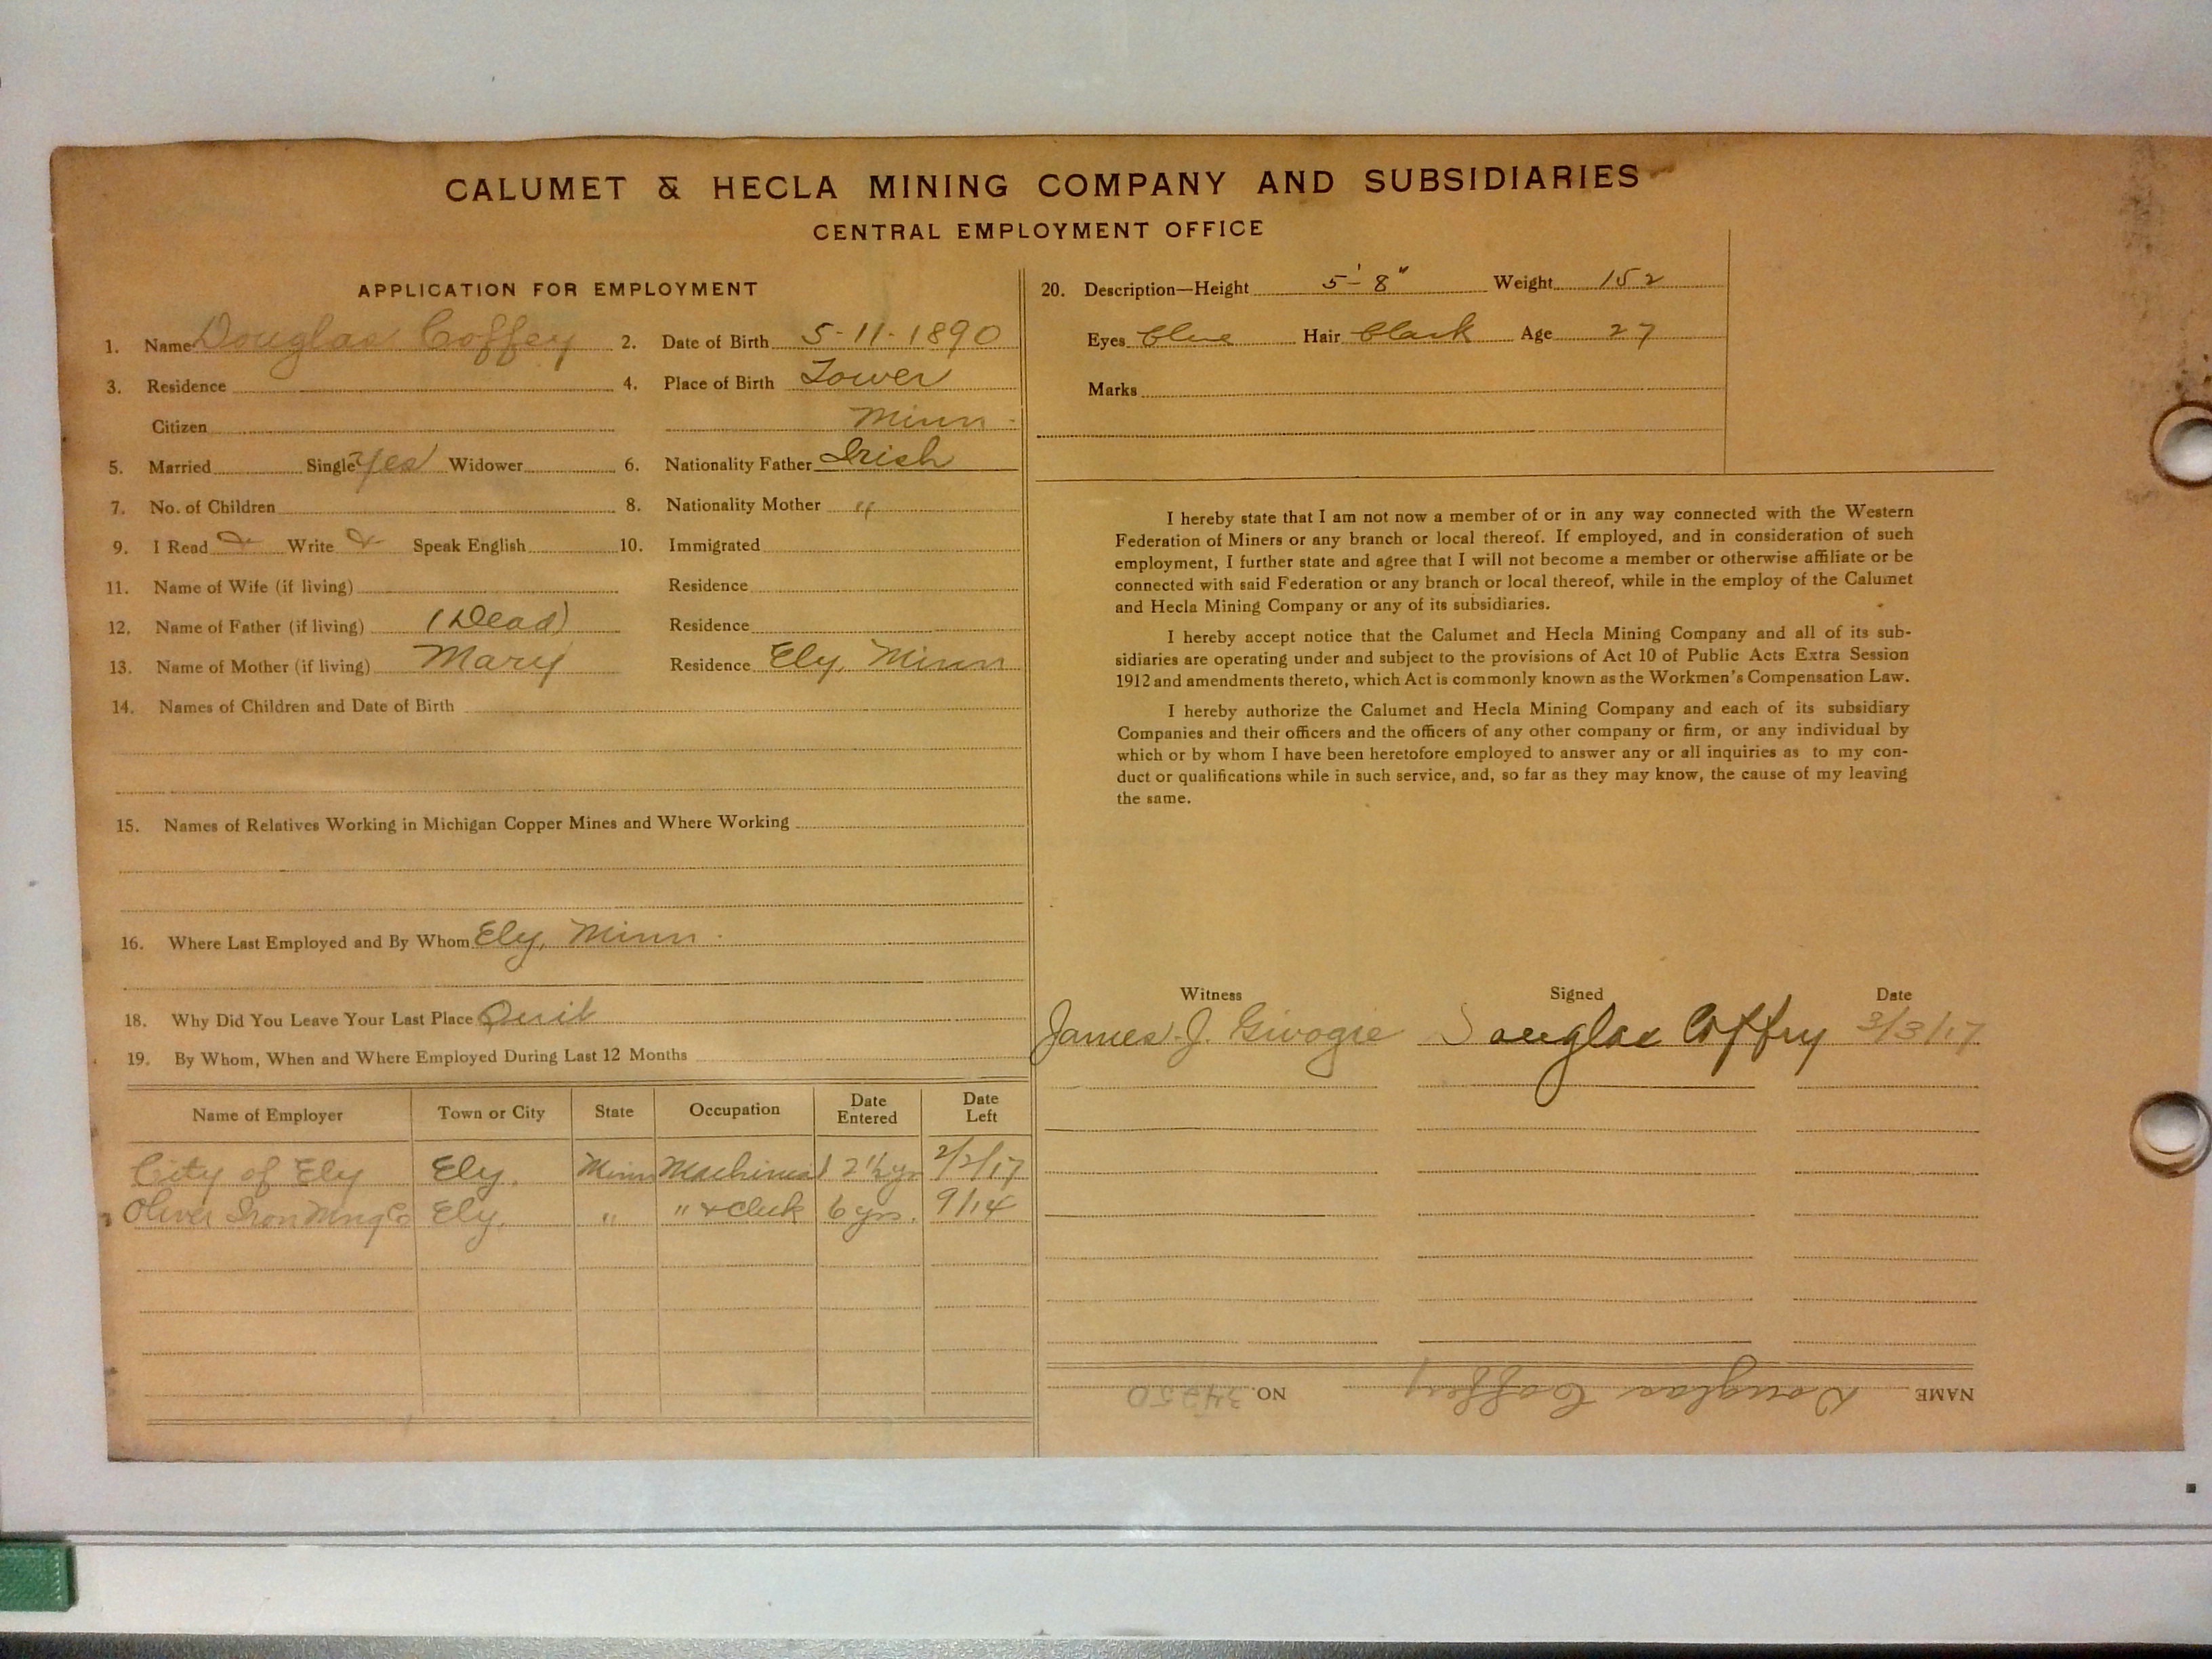 CALUMET & HECLA MINING COMPANY AND SUBSIDIARIES
CENTRAL EMPLOYMENT OFFICE
APPLICATION FOR EMPLOYMENT
1. Name Douglas Coffey 2. Date of Birth 5-11-1890
3. Residence 4. Place of Birth Tower
Citizen Minn
5. Married Single Yes Widower 6. Nationality Father Irish
7. No. of Children 8. Nationality Mother "
9. I Read Write Speak English 10. Immigrated
11. Name of Wife (if living) Residence
12. Name of Father (if living) (Dead) Residence
13. Name of Mother (if living) Mary Residence Ely, Minn
14. Names of Children and Date of Birth
15. Names of Relatives Working in Michigan Copper Mines and Where Working
16. Where Last Employed and By Whom Ely, Minn.
18. Why Did You Leave Your Last Place Quit
19. By Whom, When and Where Employed During Last 12 Months
Name of Employer Town or City State Occupation Date Entered Date Left
City of Ely Ely. Minn Machinist 2 1/2 yr 2/2/17
Oliver Iron Mng Co Ely. " " & Clerk 6 yrs. 9/14
20. Description—Height 5'-8" Weight 152
Eyes blue Hair black Age 27
Marks
I hereby state that I am not now a member of or in any way connected with the Western
Federation of Miners or any branch or local thereof. If employed, and in consideration of such
employment, I further state and agree that I will not become a member or otherwise affiliate or be
connected with said Federation or any branch or local thereof, while in the employ of the Calumet
and Hecla Mining Company or any of its subsidiaries.
I hereby accept notice that the Calumet and Hecla Mining Company and all of its sub-
sidiaries are operating under and subject to the provisions of Act 10 of Public Acts Extra Session
1912 and amendments thereto, which Act is commonly known as the Workmen's Compensation Law.
I hereby authorize the Calumet and Hecla Mining Company and each of its subsidiary
Companies and their officers and the officers of any other company or firm, or any individual by
which or by whom I have been heretofore employed to answer any or all inquiries as to my con-
duct or qualifications while in such service, and, so far as they may know, the cause of my leaving
the same.
Witness Signed Date
James J. Douglas Coffey 3/3/17
NAME Douglas Coffey NO. 34250